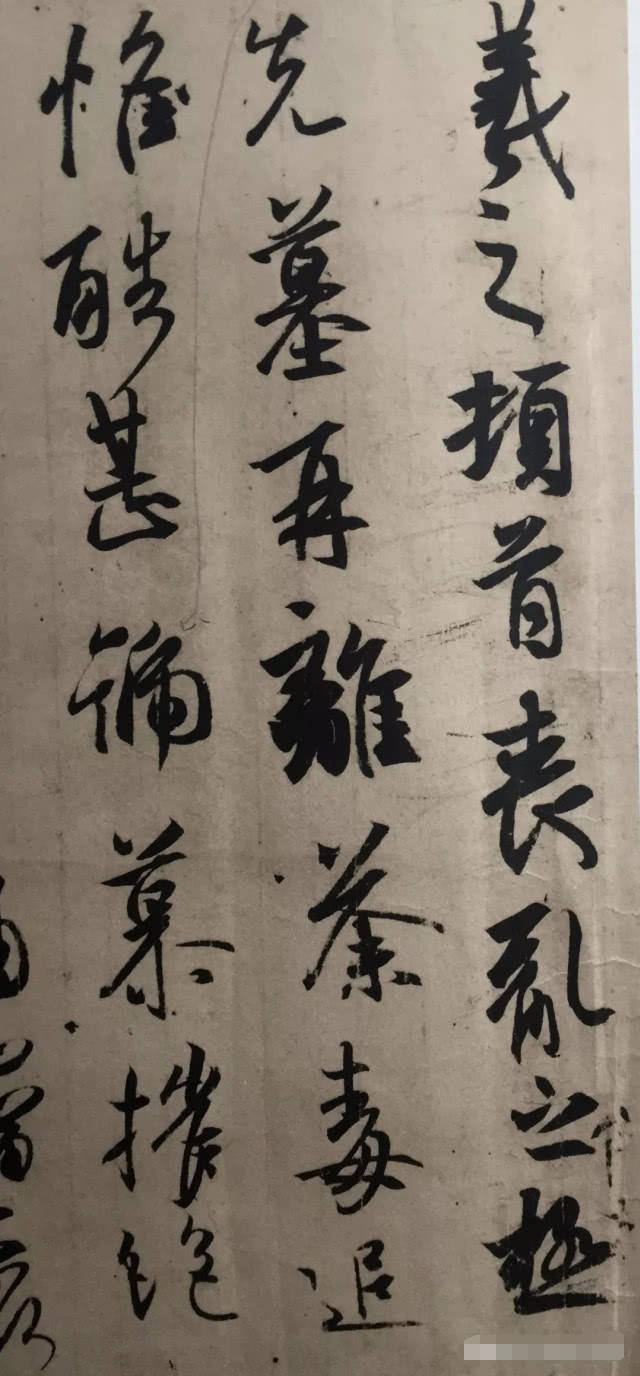 羲之頓首喪亂之極
先墓再離荼毒追
惟酷甚號慕摧絶
痛當